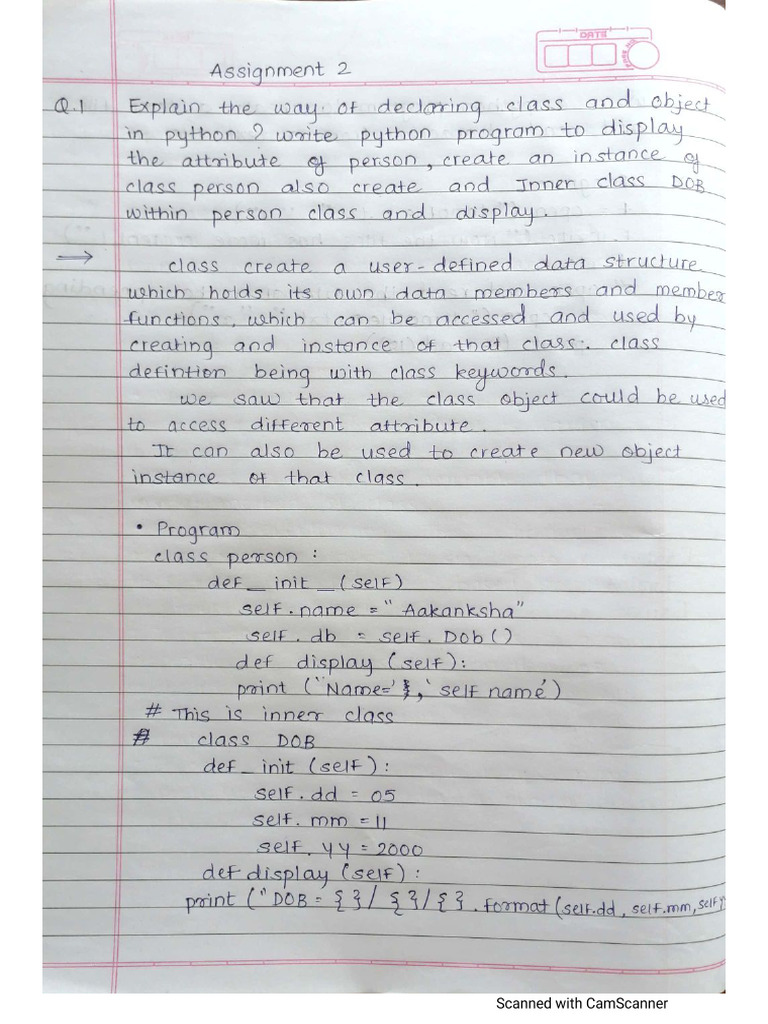 DATE
Assignment 2
Q.1 Explain the way of declaring class and object
in python? write python program to display
the attribute of person, create an instance of
class person also create and Inner class DOB
within person class and display.
→ class create a user-defined data structure
which holds its own data members and member
functions, which can be accessed and used by
creating and instance of that class. class
defintion being with class keywords.
we saw that the class object could be used
to access different attribute.
It can also be used to create new object
instance of that class.
• Program
class person :
def _ init _ (self)
self.name = "Aakanksha"
self. db = self. Dob()
def display (self):
print ("Name='}, 'self name')
# This is inner class
# class DOB
def _ init (self):
self. dd = 05
self. mm = 11
self. yy = 2000
def display (self) :
print ("DOB = {}/ {}/{}. format (self.dd, self.mm, self y
Scanned with CamScanner